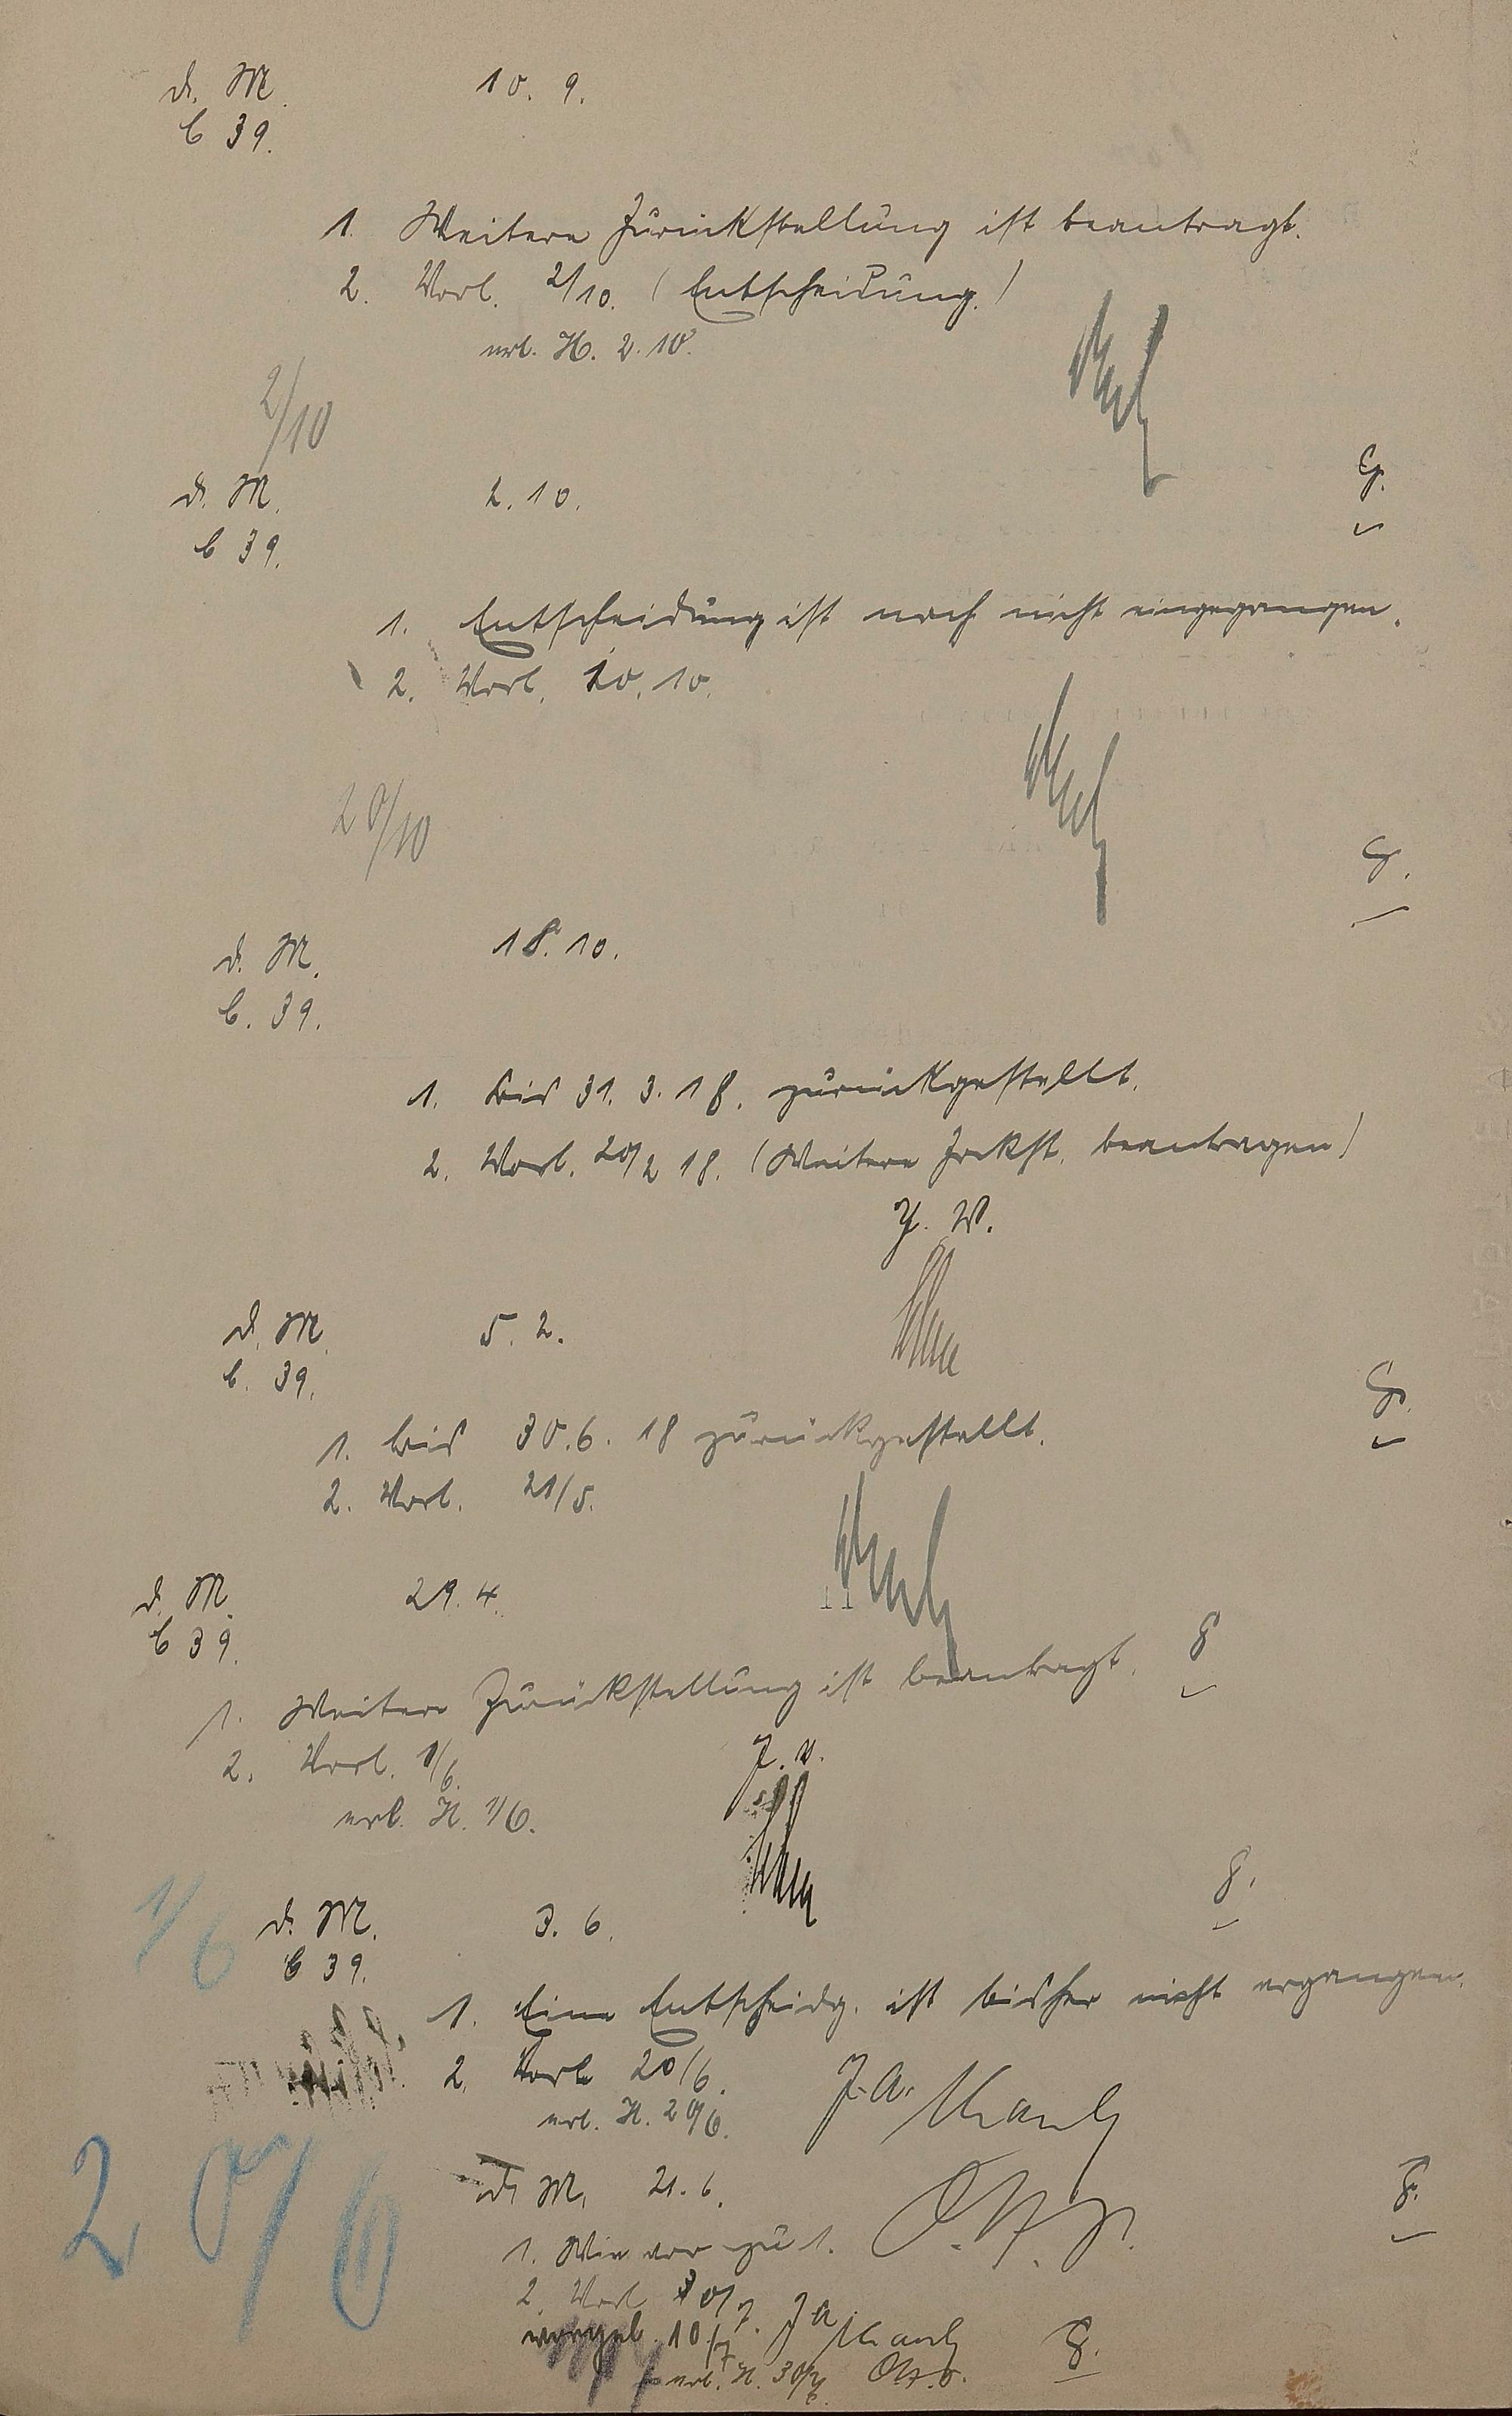 d. M. 10. 9.
C 39.
1. Weitere Zurückstellung ist beantragt.
2. Vorl. 2/10. (Entscheidung.)
erl. H. 2. 10.
2/10
d. M. 2. 10.
C 39.
1. Entscheidung ist noch nicht eingegangen.
2. Vorl. 20. 10.
20/10
d. M. 18. 10.
C. 39.
1. bis 31. 3. 18. zurückgestellt.
2. Vorl. 20/2 18. (Weitere Zrckst. beantragen)
J. V.
d. M. 5. 2.
C. 39.
1. bis 30. 6. 18 zurückgestellt.
2. Vorl. 21/5.
d. M. 29. 4.
C 39.
1. Weitere Zurückstellung ist beantragt.
2. Vorl. 1/6.
J. V.
erl. H. 1/6.
1/6
d. M. 3. 6.
C 39.
1. Eine Entscheidg. ist bisher nicht ergangen.
2. Vorl. 20/6.
J. A.
erl. H. 20/6.
20/6
d. M. 21. 6.
1. Wie vor zu 1.
2. Vorl.
J A
10/7
erl. H.